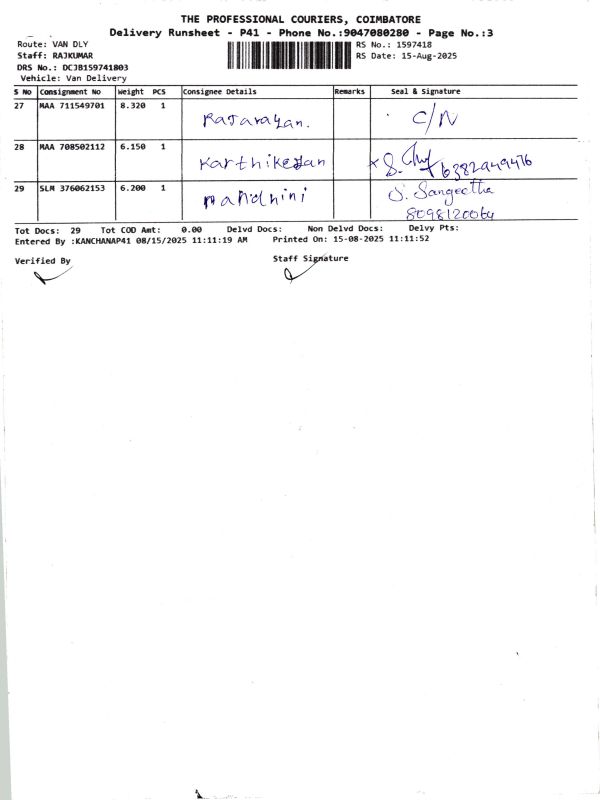 THE PROFESSIONAL COURIERS, COIMBATORE
Delivery Runsheet - P41 - Phone No.:9047080280 - Page No.:3
Route: VAN DLY
RS No.: 1597418
Staff: RAJKUMAR
RS Date: 15-Aug-2025
DRS No.: DCJB159741803
Vehicle: Van Delivery
S No Consignment No Weight PCS Consignee Details Remarks Seal & Signature
27 MAA 711549701 8.320 1 Rajarayan. C/N
28 MAA 708502112 6.150 1 Karthikeyan 6382949476
29 SLM 376062153 6.200 1 Nandhini S. Sangeetha
8098120064
Tot Docs: 29 Tot COD Amt: 0.00 Delvd Docs: Non Delvd Docs: Delvy Pts:
Entered By :KANCHANAP41 08/15/2025 11:11:19 AM Printed On: 15-08-2025 11:11:52
Verified By Staff Signature